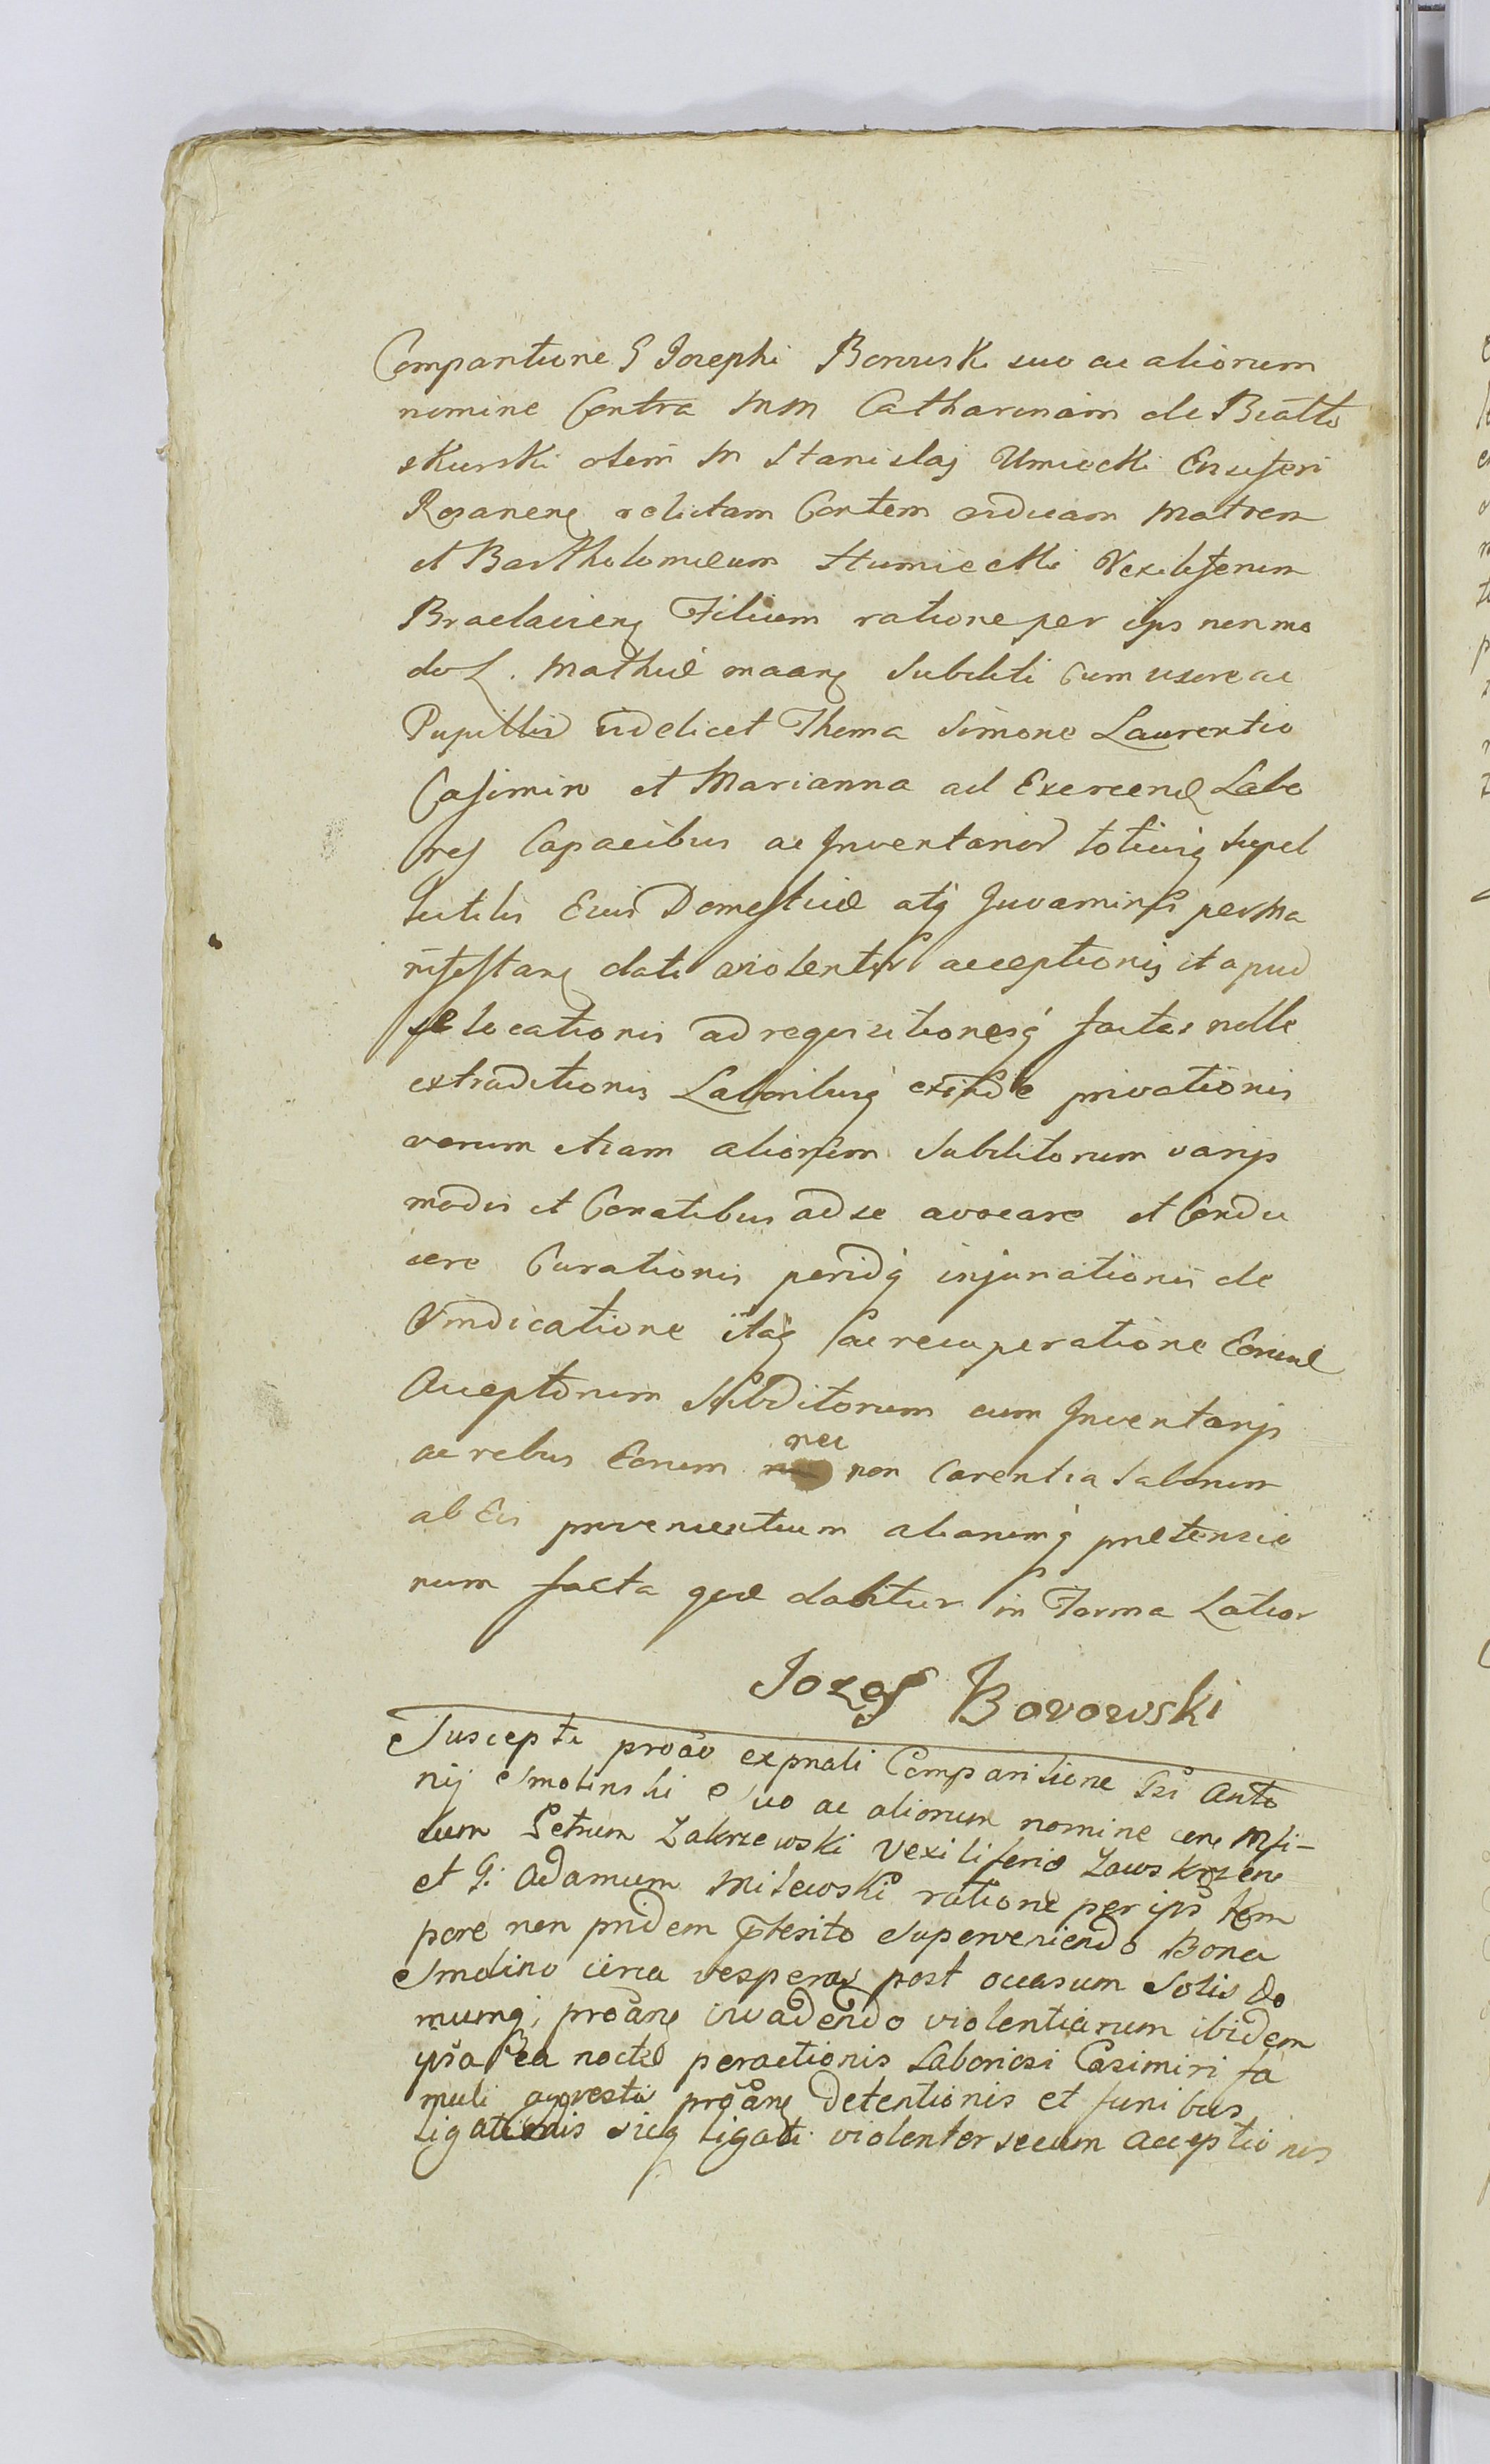 Comparitione G Josephi Borowski suo ac aliorum
nomine Contra MM Catharinam de Biatto
skurski olim M Stanislaj Umiecki Ensiferi
Rozanens relictam Contem viduam Matrem
et Bartholomeum Humiecki Vexiliferum
Braclaviens Filium ratione per ips non mo
do L. Mathiæ maanz Subditi cum uxore ac
Pupillis videlicet Thoma Simone Laurentio
Casimiro et Marianna ad Exercend Labo
res Capacibus ac Inventarior totiusq supel
lectilis Eius Domesticæ atq Juvaminis per Ma
nifestanz dati violenter acceptionis it apud
se locationis ad requisitionesq factas nolle
extraditionis Laboribusq exinde privationis
verum etiam aliorum Subditorum varijs
modis et Conatibus ad se avocare et Condu
cere Curationis peridq injuriationis de
Vindicatione itaq ac recuperatione Eorund
Acceptorum Subditorum cum Inventarijs
ac rebus Eorum nec non Carentia Laborum
ab Eis provenientium aliorumq prætensio
num facta quæ dabitur in Forma Latior
Jozef Borowski
Suscepta proão expnali Comparitione Gsi Anto
nij Smolinski Suo ac aliorum nomine cone Mfi-
cum Petrum Zakrzewski Vexiliferio Zawskrzens
et G: Adamum Milewski ratione per ips tem
pore non pridem pterito superveniendo Bona
Smolino circa vesperas post occasum Solis do
mumq; proãnz invadendo violentiarum ibidem
ipsa Rea nocte peractionis Laboriosi Casimiri fa
muli agrestis proãnz detentionis et funibus
ligationis sicq ligati violenter secum acceptionis